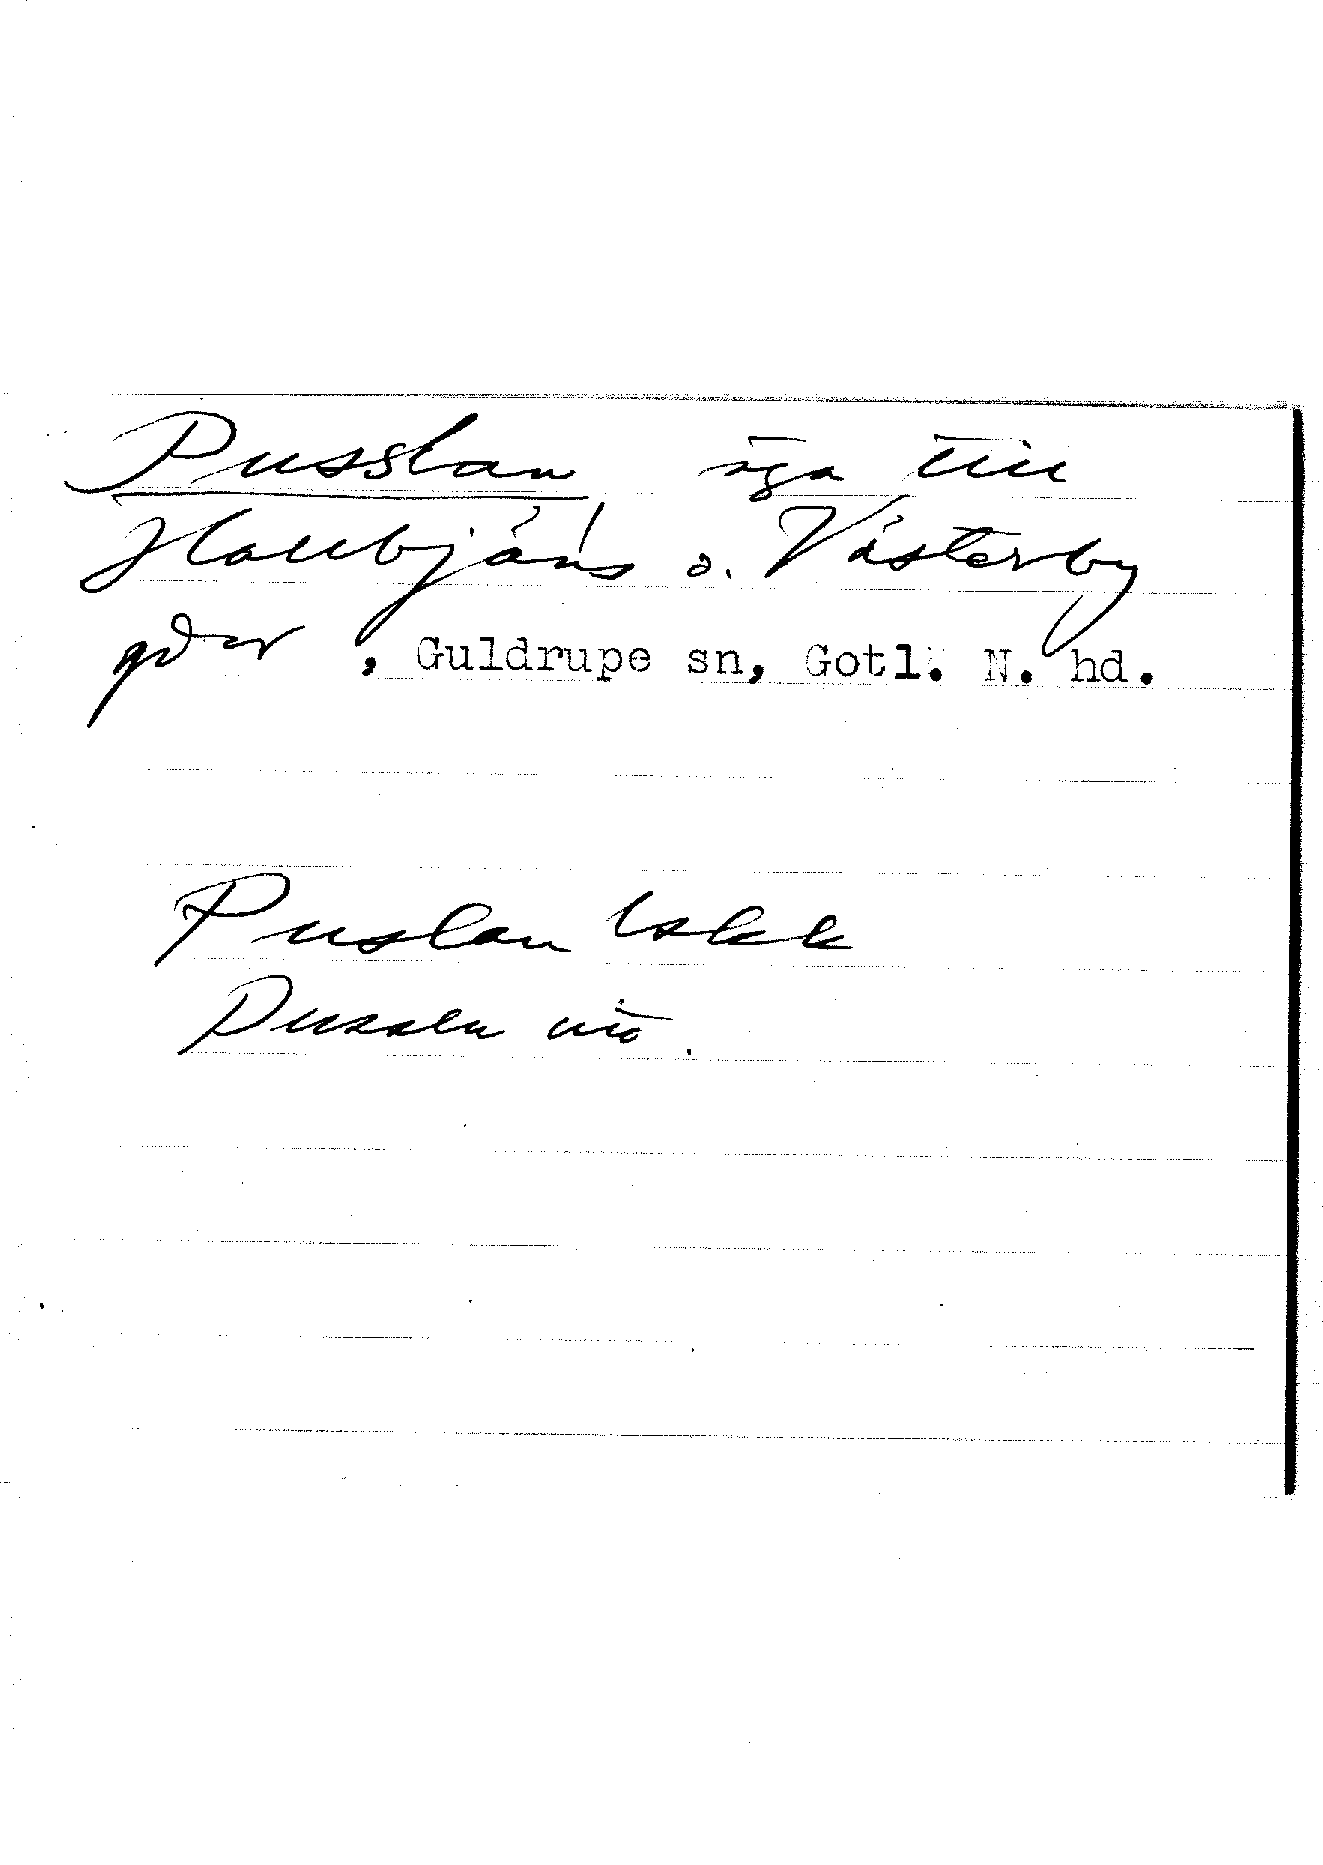 Pusslan äga till
Hallbjäns o. Västerby
gdar, Guldrupe sn, Gotl. N. hd.
Puslan Lskk
Pusseln